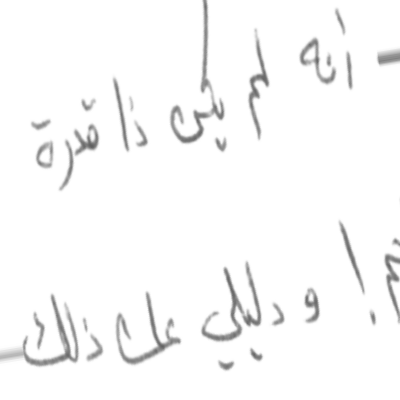 أنه لم يكن ذا قدرة
! ودليلي على ذلك